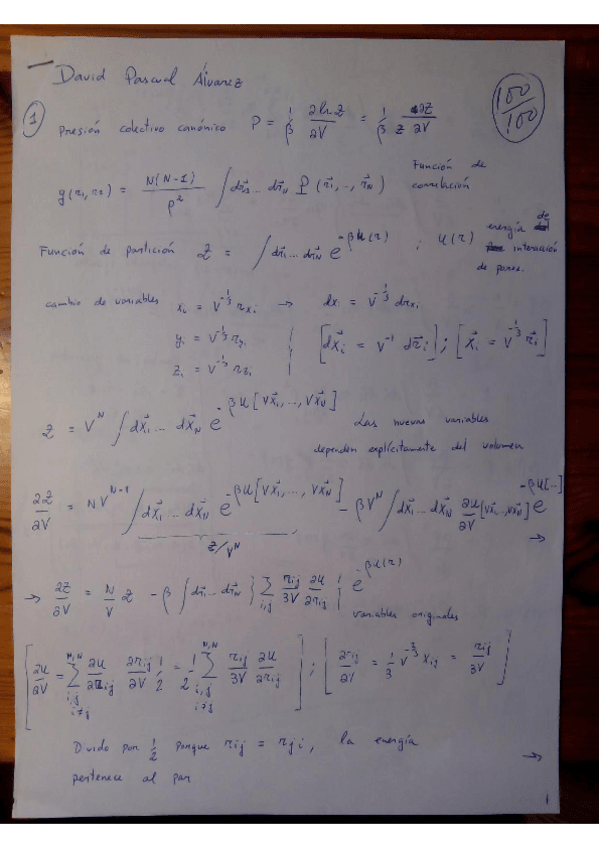 David Pascual Álvarez
100/100
① Presión colectivo canónico P = 1/β ∂ln Z/∂V = 1/β 1/Z ∂Z/∂V
g(r₁,r₂) = N(N-1)/ρ² ∫dr⃗₃... dr⃗N P(r⃗₁,..,r⃗N) Función de correlación
Función de partición Z = ∫dr⃗₁... dr⃗N e^{-βU(r)} ; U(r) energía de interacción de pares.
cambio de variables xᵢ = V^{-1/3} r_{xi} → dxᵢ = V^{-1/3} dr_{xi}
yᵢ = V^{-1/3} r_{yi} | [dx⃗ᵢ = V^{-1} dr⃗ᵢ] ; [x⃗ᵢ = V^{-1/3} r⃗ᵢ]
zᵢ = V^{-1/3} r_{zi}
Z = V^N ∫dx⃗₁... dx⃗N e^{-βU[Vx⃗₁,..., Vx⃗N]} Las nuevas variables
dependen explícitamente del volumen
∂Z/∂V = NV^{N-1} ∫dx⃗₁... dx⃗N e^{-βU[Vx⃗₁,..., Vx⃗N]} - βV^N ∫dx⃗₁... dx⃗N ∂U/∂V [Vx⃗₁,..,Vx⃗N] e^{-βU[..]}
Z/V^N →
→ ∂Z/∂V = N/V Z - β ∫dr⃗₁... dr⃗N { ∑_{i,j} r_{ij}/3V ∂U/∂r_{ij} } e^{-βU(r)}
variables originales
[∂U/∂V = ∑_{i,j i≠j}^{N,N} ∂U/∂r_{ij} ∂r_{ij}/∂V 1/2 = 1/2 ∑_{i,j i≠j}^{N,N} r_{ij}/3V ∂U/∂r_{ij}] ; [∂r_{ij}/∂V = 1/3 V^{-2/3} x_{ij} = r_{ij}/3V]
Divido por 1/2 porque r_{ij} = r_{ji}, la energía
pertenece al par →
1